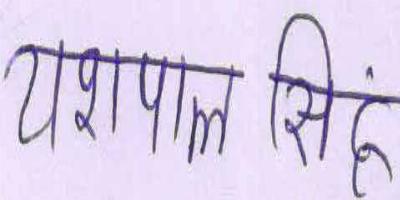 यशपाल सिंह